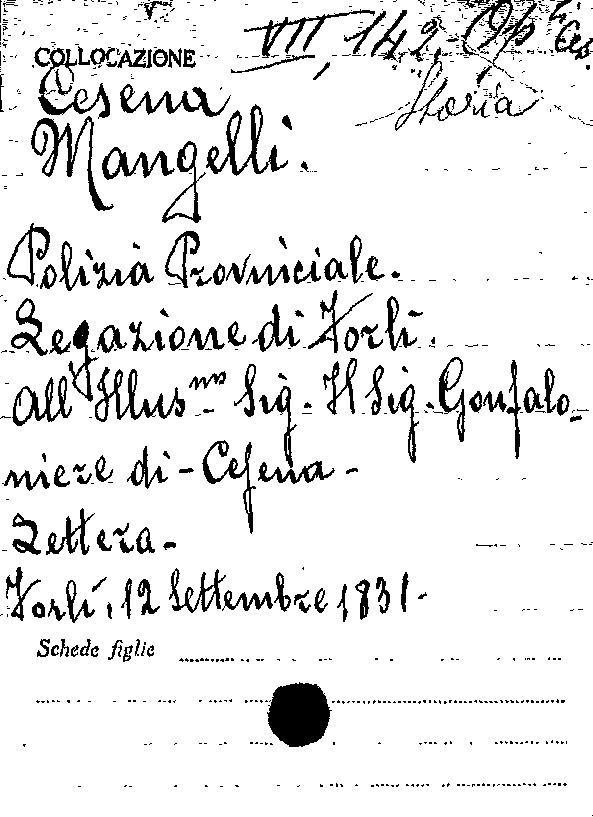 COLLOCAZIONE VII, 142. Op. Ces.
Cesena Storia
Mangelli.
Polizia Provinciale.
Legazione di Forlì.
All' Illus.mo Sig. Il Sig. Gonfalo-
niere di - Cesena -
Lettera -
Forlì, 12 Settembre 1831 -
Schede figlie